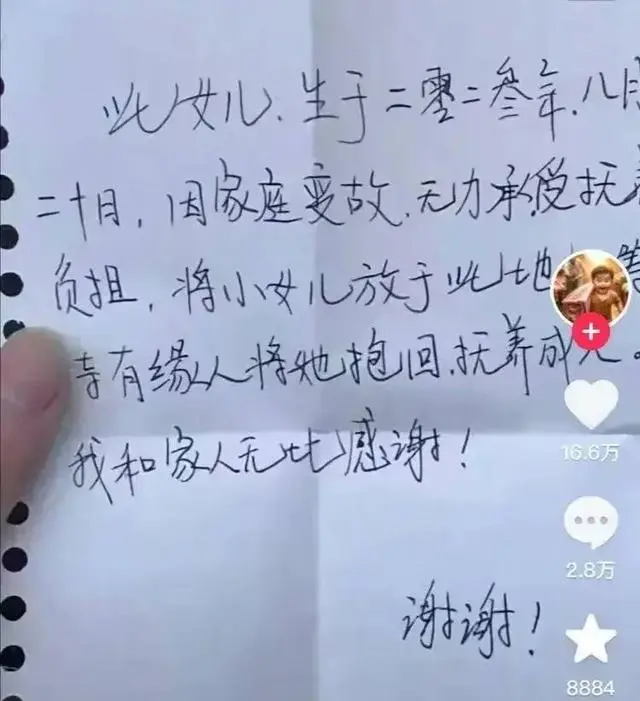 此女儿、生于二零二叁年.八月
二十日，因家庭变故.无力承受抚养
负担，将小女儿放于此地
幸有缘人将她抱回.抚养成人。
我和家人无比感谢！
谢谢！
16.6万
2.8万
8884